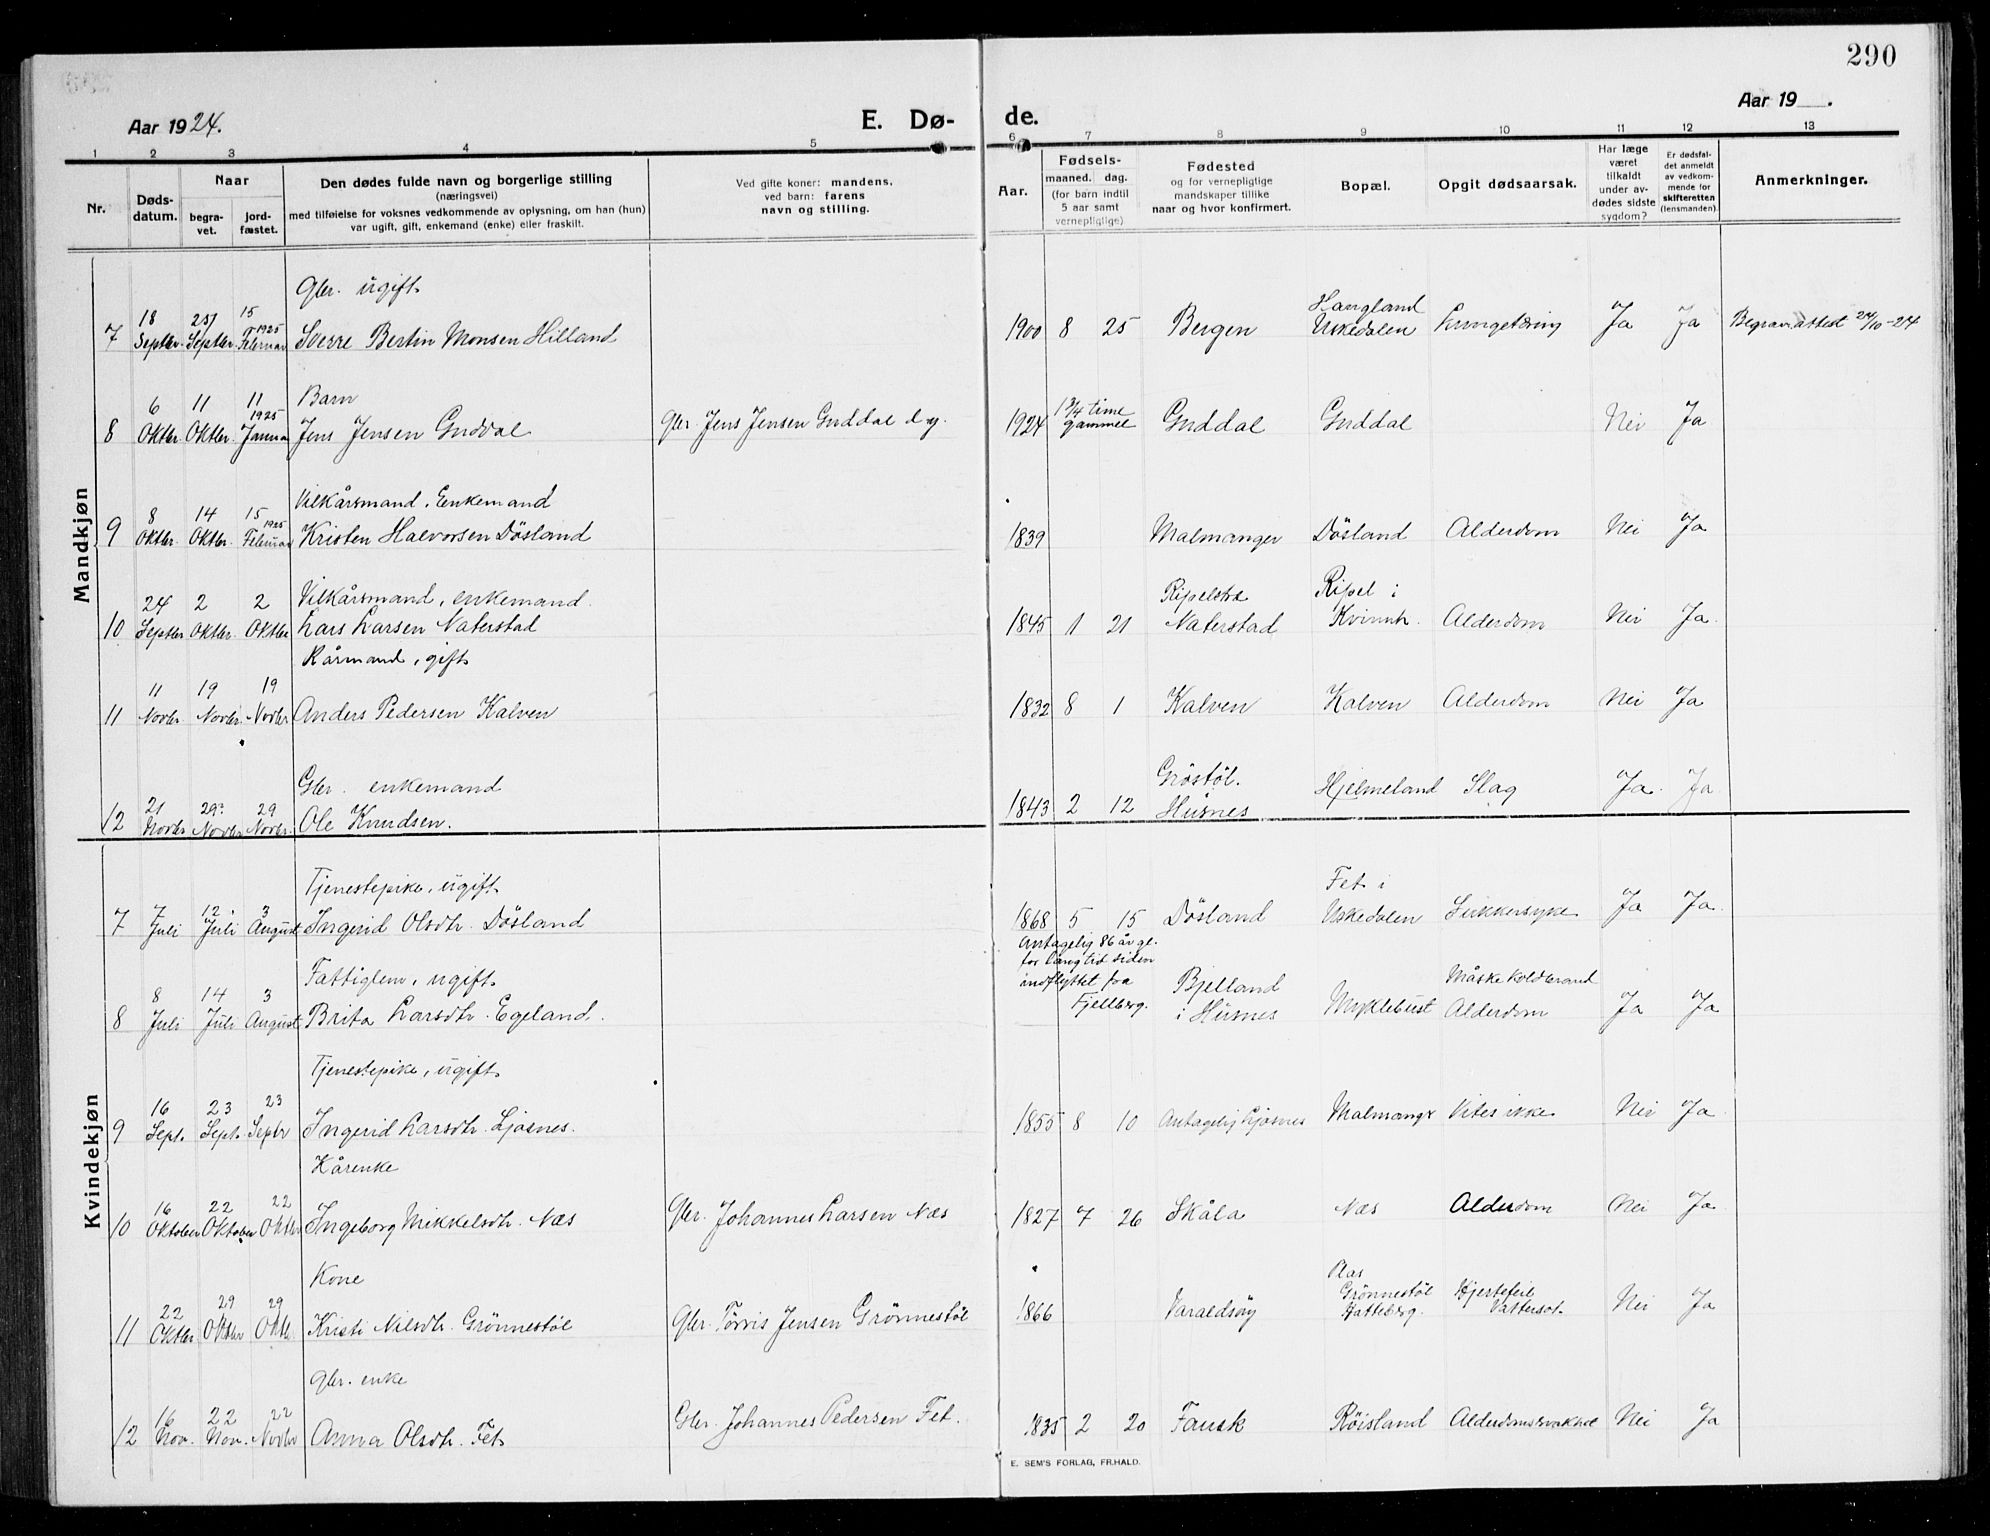 290
Aar 1924.
E. Dø-
de.
Aar 19 .
1 2 3 4 5 6 7 8 9 10 11 12 13
Nr.
Døds-
datum.
Naar
begra-
vet.
jord-
fæstet.
Den dødes fulde navn og borgerlige stilling
(næringsvei)
med tilføielse for voksnes vedkommende av oplysning, om han (hun)
var ugift, gift, enkemand (enke) eller fraskilt.
Ved gifte koner: mandens,
ved barn: farens
navn og stilling.
Aar.
Fødsels-
maaned. dag.
(for barn indtil
5 aar samt
vernepligtige)
Fødested
og for vernepligtige
mandskaper tillike
naar og hvor konfirmert.
Bopæl.
Opgit dødsaarsak.
Har læge
været
tilkaldt
under av-
dødes sidste
sygdom?
Er dødsfal-
det anmeldt
av vedkom-
mende for
skifteretten
(lensmanden).
Anmerkninger.
Mandkjøn
Gbr. ugift
18 25 15 1925 Hangland
7 Septbr. Septbr. Februar Sverre Bertin Monsen Hilland 1900 8 25 Bergen Uskedalen Lungetæring Ja Ja Begrav.attest 24/10-24
6 11 11 1925 Barn 1 3/4 time
8 Oktbr. Oktbr. Januar Jens Jensen Guddal Gbr. Jens Jensen Guddal d.y. 1924 gammel Guddal Guddal Nei Ja
8 14 15 1925 Vilkårsmand, Eenkemand
9 Oktbr. Oktbr. Februar Kristen Halvorsen Døsland 1839 Malmanger Døsland Alderdom Nei Ja
24 2 2 Vilkårsmand, enkemand. Ripelstræ Ripel i
10 Septbr Oktbr. Oktbr Lars Larsen Naterstad 1845 1 21 Naterstad Kvinnh. Alderdom Nei Ja
Kårmand, gift
11 19 19
11 Novbr Novbr. Novbr Anders Pedersen Kalven 1832 8 1 Kalven Kalven Alderdom Nei Ja
Gbr. enkemand Gröstøl.
21 29 29
12 Novbr Novbr Novbr. Ole Knudsen. 1843 2 12 Husnes Hjelmeland Slag Ja Ja
Kvindekjøn
Tjenestepike, ugift Fet i
7 12 3
7 Juli Juli August Ingerid Olsdtr. Døsland 1868 5 15 Døsland Uskedalen Sukkersyke Ja Ja
Antagelig 86 år gl.
for lang tid siden
indflyttet fra
Fjellberg.
Fattiglem, ugift Bjelland Måske koldbrand
8 14 3
8 Juli Juli August Brita Larsdtr. Egeland. i Husnes Myklebust Alderdom Ja Ja
Tjenestepike, ugift
16 23 23
9 Sept. Sept. Septbr Ingerid Larsdtr. Ljosnes. 1855 8 10 Antagelig Ljosnes Malmangr Vites ikke Nei Ja
Kårenke
16 22 22
10 Oktober Oktober Oktbr Ingeborg Mikkelsdtr. Næs Gbr. Johannes Larsen Næs 1827 7 26 Skåla Næs Alderdom Nei Ja
Kone Aas
22 29 29 Grönnestøl Hjertefeil
11 Oktbr Oktbr Oktb. Kristi Nilsdtr. Grönnestøl Gbr. Torris Jensen Grönnestøl 1866 Varaldsöy Hatteberg. Vattersot. Nei Ja
Gbr. enke
16 22 22
12 Nov. Nov. Novbr Anna Olsdtr. Fet Gbr. Johannes Pedersen Fet. 1835 2 20 Fausk Røisland Alderdomssvakhet Nei Ja
E. SEM'S FORLAG, FR.HALD.